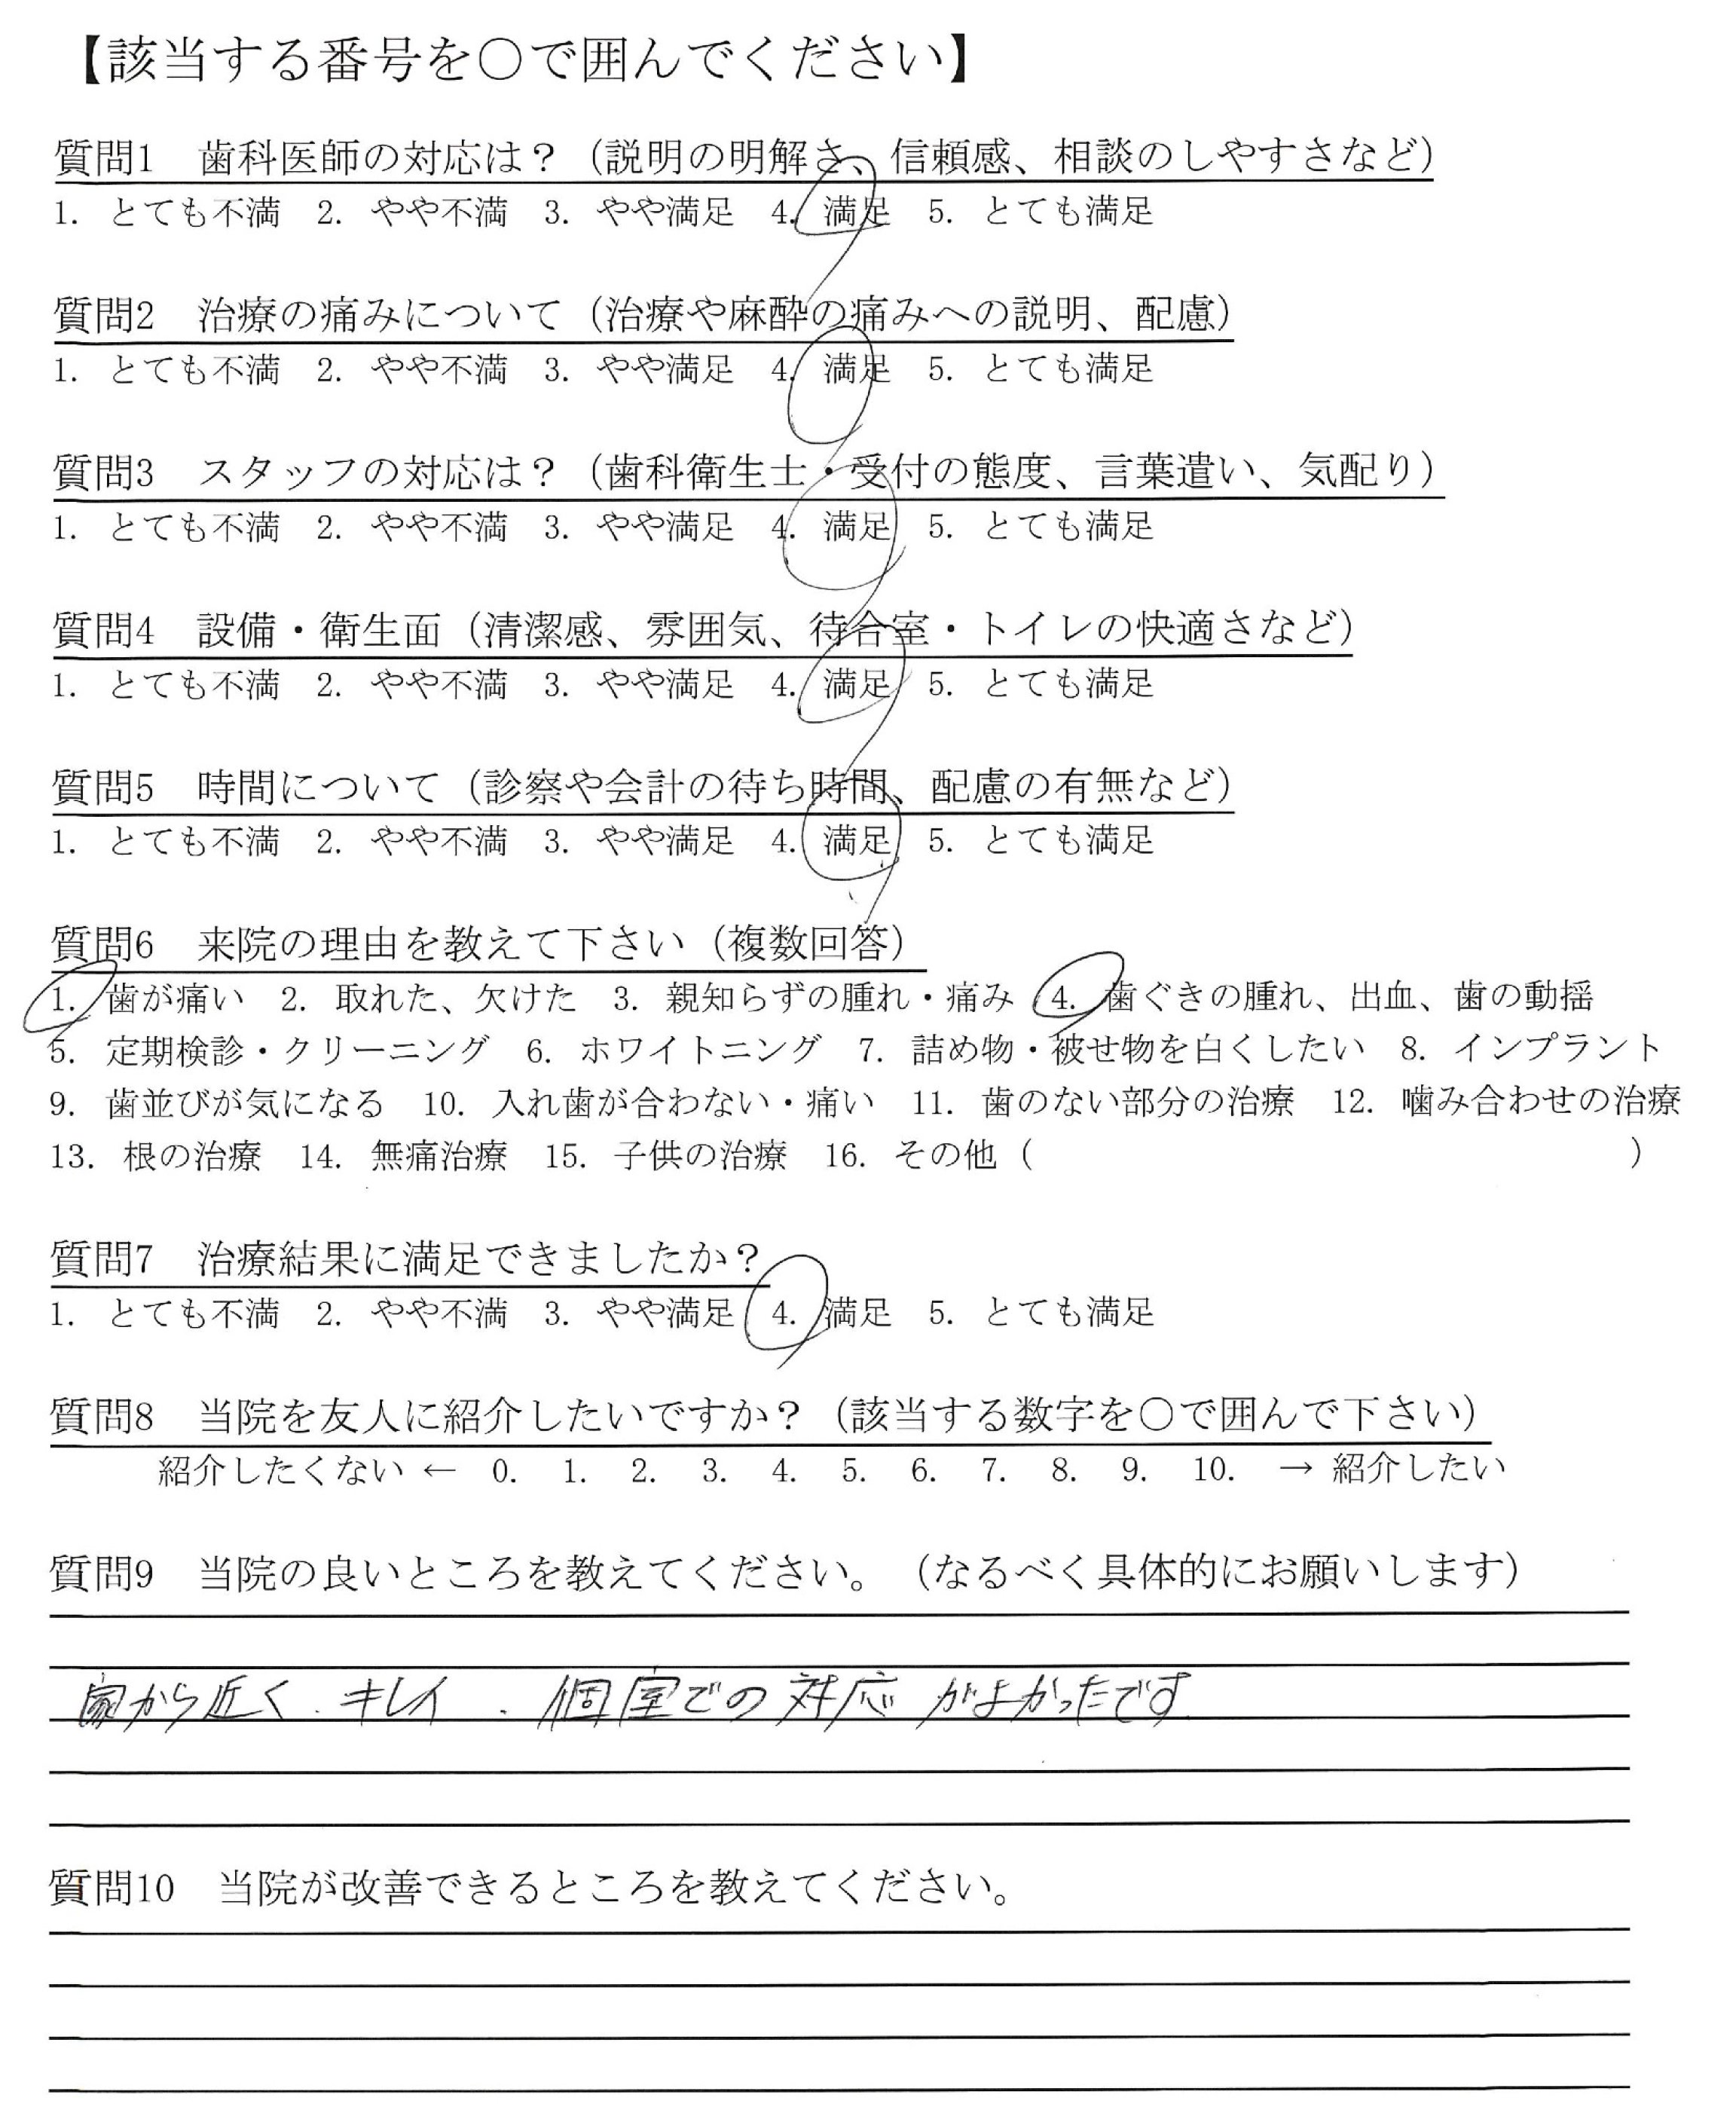 【該当する番号を○で囲んでください】
質問1　歯科医師の対応は？（説明の明解さ、信頼感、相談のしやすさなど）
1. とても不満　2. やや不満　3. やや満足　4. 満足　5. とても満足
質問2　治療の痛みについて（治療や麻酔の痛みへの説明、配慮）
1. とても不満　2. やや不満　3. やや満足　4. 満足　5. とても満足
質問3　スタッフの対応は？（歯科衛生士・受付の態度、言葉遣い、気配り）
1. とても不満　2. やや不満　3. やや満足　4. 満足　5. とても満足
質問4　設備・衛生面（清潔感、雰囲気、待合室・トイレの快適さなど）
1. とても不満　2. やや不満　3. やや満足　4. 満足　5. とても満足
質問5　時間について（診察や会計の待ち時間、配慮の有無など）
1. とても不満　2. やや不満　3. やや満足　4. 満足　5. とても満足
質問6　来院の理由を教えて下さい（複数回答）
1. 歯が痛い　2. 取れた、欠けた　3. 親知らずの腫れ・痛み　4. 歯ぐきの腫れ、出血、歯の動揺
5. 定期検診・クリーニング　6. ホワイトニング　7. 詰め物・被せ物を白くしたい　8. インプラント
9. 歯並びが気になる　10. 入れ歯が合わない・痛い　11. 歯のない部分の治療　12. 噛み合わせの治療
13. 根の治療　14. 無痛治療　15. 子供の治療　16. その他（　　　　　　　　　　）
質問7　治療結果に満足できましたか？
1. とても不満　2. やや不満　3. やや満足　4. 満足　5. とても満足
質問8　当院を友人に紹介したいですか？（該当する数字を○で囲んで下さい）
紹介したくない ← 0. 1. 2. 3. 4. 5. 6. 7. 8. 9. 10. → 紹介したい
質問9　当院の良いところを教えてください。（なるべく具体的にお願いします）
家から近く、キレイ、個室での対応がよかったです
質問10　当院が改善できるところを教えてください。